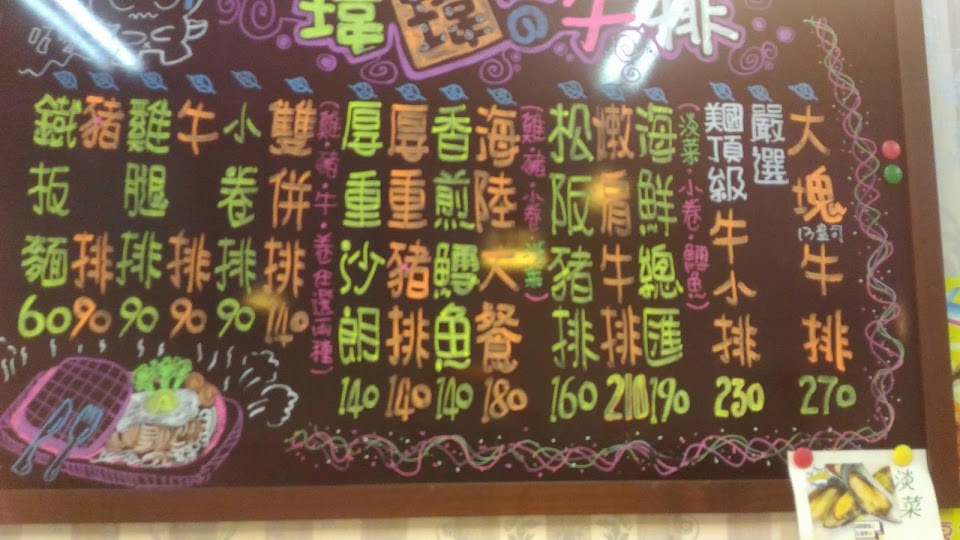 瑋 瑋 牛排
大塊牛排 270
13盎司
嚴選
頂級牛小排 230
海鮮總匯 190
(淡菜·小卷·鱈魚)
嫩肩牛排 210
松阪豬排 160
海陸大餐 180
(雞·豬·小卷·淡菜)
香煎鱈魚 140
厚重豬排 140
厚重沙朗 140
雙併排 140
(雞·豬·牛·卷任選兩種)
小卷排 90
牛排 90
雞腿排 90
豬排 90
鐵板麵 60
淡菜